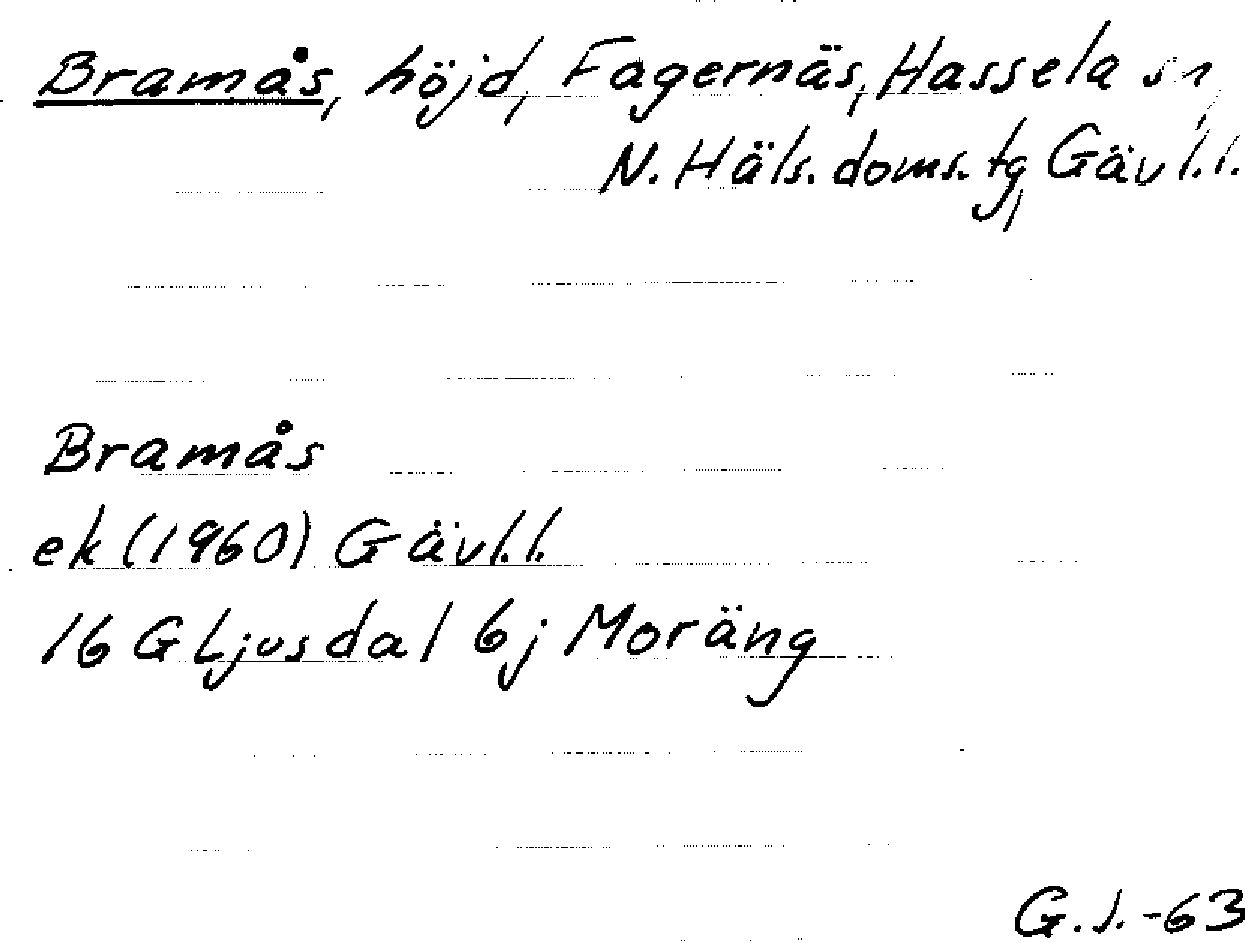 Bramås, höjd, Fagernäs, Hassela sn,
N. Häls. doms. tg, Gävl.l.
Bramås
ek (1960) Gävl.l.
16 G Ljusdal 6j Moräng
G.J.-63